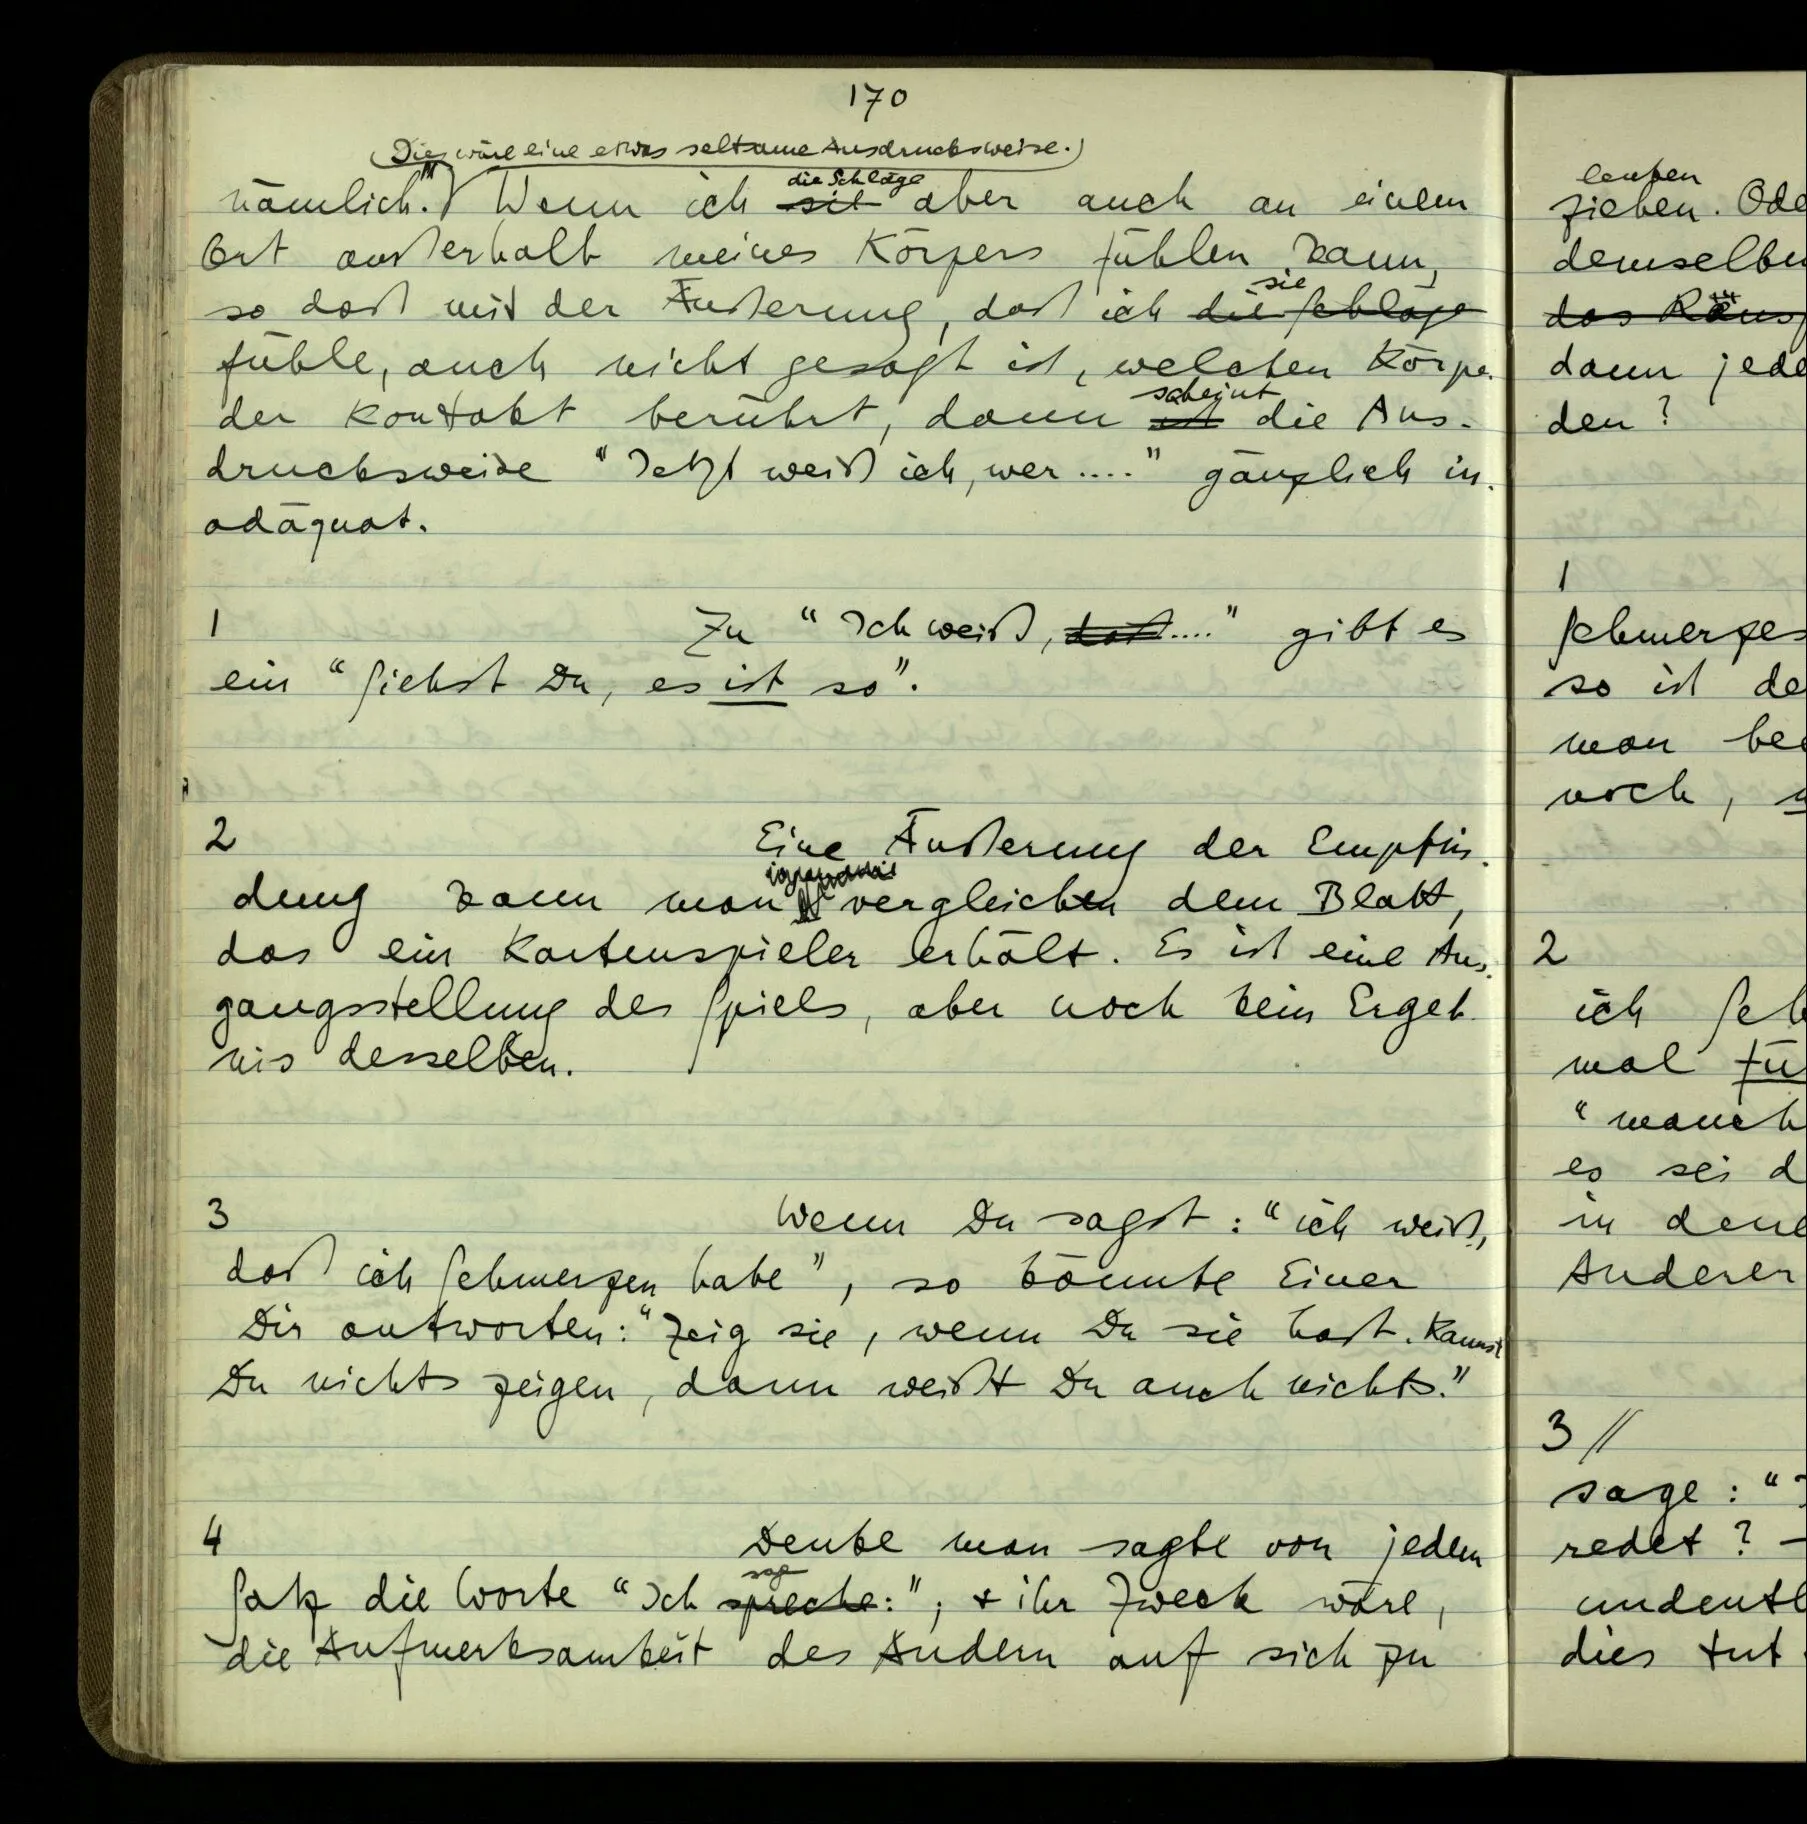 170
(Dies wäre eine etwas seltsame Ausdrucksweise.)
die Schläge
nämlich.") Wenn ich aber auch an einem
Ort außerhalb meines Körpers fühlen kann,
sie
so daß mit der Äußerung, daß ich die Schläge
fühle, auch nicht gesagt ist, welchen Körper
scheint
der Kontakt berührt, dann ist die Aus-
drucksweise "Jetzt weiß ich, wer ...." gänzlich in-
adäquat.
1 Zu "Ich weiß, daß ...." gibt es
ein "Siehst Du, es ist so".
2 Eine Äußerung der Empfin-
dung kann man vergleichen dem Blatt,
das ein Kartenspieler erhält. Es ist eine Aus-
gangsstellung des Spiels, aber noch kein Ergeb-
nis desselben.
3 Wenn Du sagst: "ich weiß,
daß ich Schmerzen habe", so könnte Einer
Dir antworten: "Zeig sie, wenn Du sie hast. Kannst
Du nichts zeigen, dann weißt Du auch nichts."
4 Denke man sagte von jedem
sag
Satz die Worte "Ich spreche:", + ihr Zweck wäre,
die Aufmerksamkeit des Andern auf sich zu
lenken
ziehen. Ode
demselben
das Räusp
dann jede
den?
1
Schmerzes
so ist de
man be
noch, u
2
ich Sch
mal fü
"manch
es sei d
in dene
Anderer
3 //
sage: "J
redet? -
undeutl
dies tut